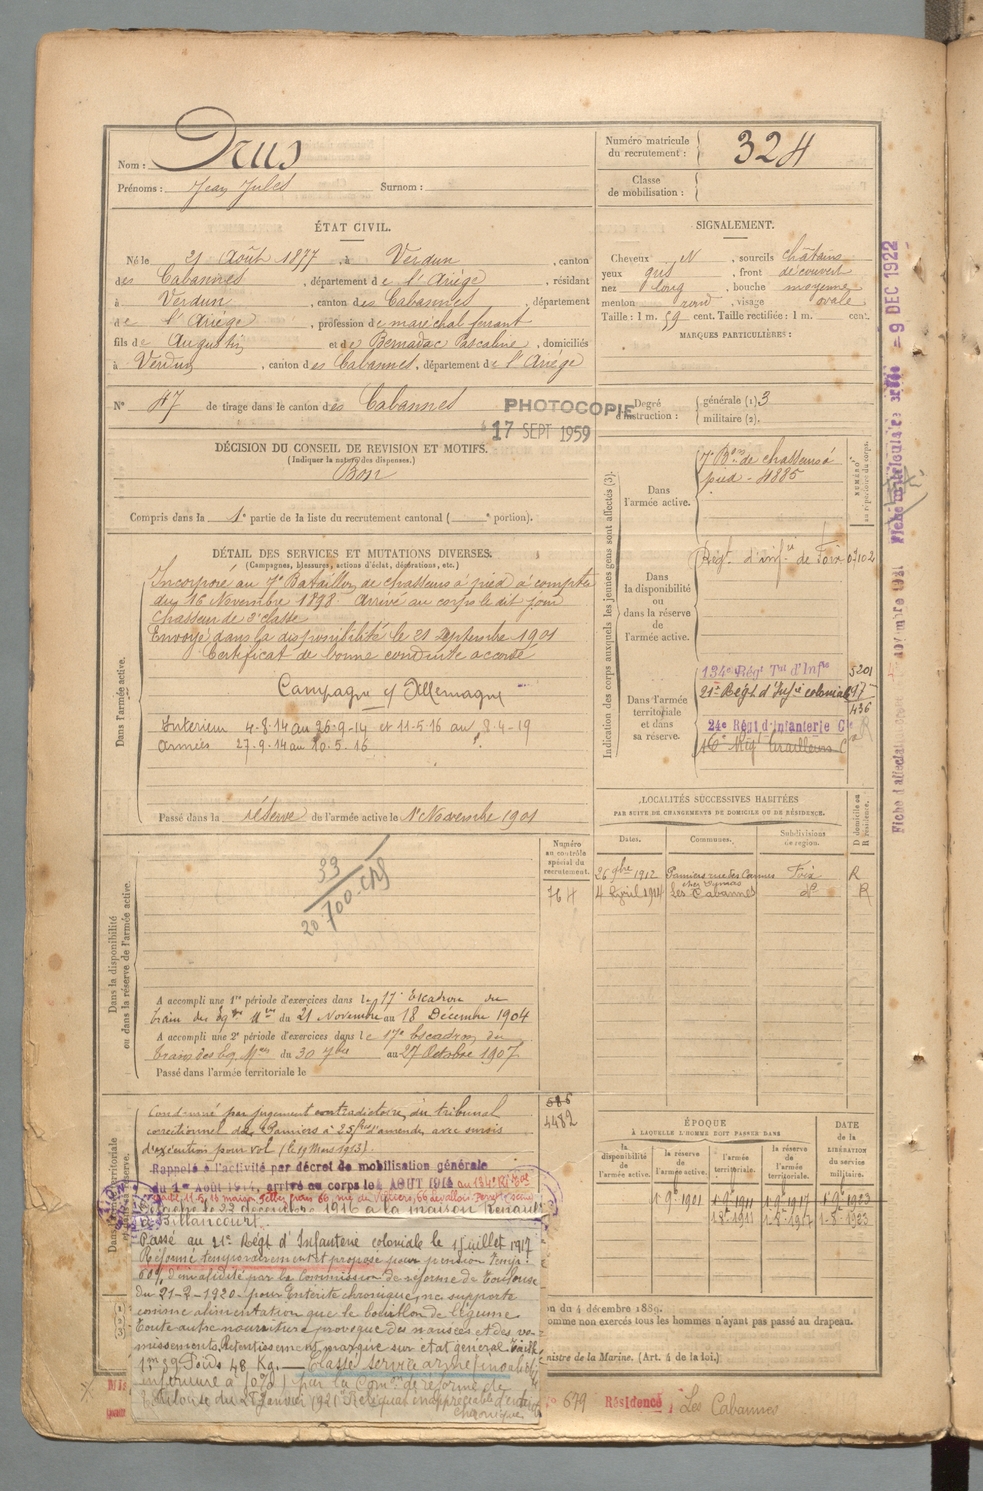 Nom : Drus
Prénoms : Jean Jules Surnom :
Numéro matricule du recrutement : 324
Classe de mobilisation :
ÉTAT CIVIL.
Né le 21 Août 1877, à Verdun, canton
des Cabannes, département de l'Ariège, résidant
à Verdun, canton des Cabannes, département
de l'Ariège, profession de maréchal ferrant
fils de Augustin et de Bernadac Pascaline, domiciliés
à Verdun, canton des Cabannes, département de l'Ariège
N° 47 de tirage dans le canton des Cabannes
SIGNALEMENT.
Cheveux N, sourcils châtains
yeux gris, front découvert
nez long, bouche moyenne
menton rond, visage ovale
Taille : 1 m. 59 cent. Taille rectifiée : 1 m. cent.
MARQUES PARTICULIÈRES :
PHOTOCOPIE
17 SEPT 1959
Degré d'instruction : générale (1) 3
militaire (2).
DÉCISION DU CONSEIL DE REVISION ET MOTIFS.
(Indiquer la nature des dispenses.)
Bon
Compris dans la 1e partie de la liste du recrutement cantonal ( e portion).
DÉTAIL DES SERVICES ET MUTATIONS DIVERSES.
(Campagnes, blessures, actions d'éclat, décorations, etc.)
Dans l'armée active.
Incorporé au 7e Bataillon de chasseurs à pied à compter
du 16 Novembre 1898. Arrivé au corps le dit jour
Chasseur de 2e classe
Envoyé dans la disponibilité le 21 Septembre 1901
Certificat de bonne conduite accordé
Campagne c/ Allemagne
Intérieur 4-8-14 au 26-9-14 et 11-5-16 au 8-4-19
Armées 27-9-14 au 10-5-16
Passé dans la réserve de l'armée active le 1er Novembre 1901
Indication des corps auxquels les jeunes gens sont affectés (3).
Dans l'armée active.
7e Bon de chasseurs à
pied - 4885
NUMÉRO au répertoire du corps.
Dans la disponibilité ou dans la réserve de l'armée active.
Régt d'infie de Foix 07102
Dans l'armée territoriale et dans sa réserve.
134e Régt Tal d'Infie 5201
21e Régt d'Infie coloniale
1436
24e Régt d'Infanterie C
16e Régt tirailleurs C
R
Fiche matriculaire
- 9 DEC 1922
Fiche d'affectation
novembre 1921
LOCALITÉS SUCCESSIVES HABITÉES
PAR SUITE DE CHANGEMENTS DE DOMICILE OU DE RÉSIDENCE.
Dates. Communes. Subdivisions de région. D domicile ou R résidence.
26 9bre 1912 Pamiers rue des Carmes Foix R
4 Avril 1914 Les Cabannes d° R
Dans la disponibilité ou dans la réserve de l'armée active.
Numéro au contrôle spécial du recrutement.
764
33
20.700
A accompli une 1re période d'exercices dans le 17e Escadron du
train des Eqges Mres du 21 Novembre au 18 Décembre 1904
A accompli une 2e période d'exercices dans le 17e Escadron du
train des Eq. Mres du 30 7bre au 27 Octobre 1907
Passé dans l'armée territoriale le
Condamné par jugement contradictoire du tribunal
correctionnel de Pamiers à 25frs d'amende, avec sursis
d'exécution pour vol (le 19 Mars 1913).
586
4482
Rappelé à l'activité par décret de mobilisation générale
du 1er Août 1914, arrivé au corps le 4 AOUT 1914 au 134e RI Tal
22 décembre 1916 à la maison Renault
à Billancourt.
Passé au 21e Régt d'Infanterie coloniale le 1 Juillet 1917
Réformé temporairement et proposé pour pension temp.
60% d'invalidité par la Commission de réforme de Toulouse
du 21-2-1920 pour Entérite chronique, ne supporte
comme alimentation que le bouillon de légume.
Toute autre nourriture provoque des nausées et des vo-
missements. Retentissement marqué sur état général. Taille
1m59 Poids 48 Kg. — Classé service armé invalidité
inférieure à 10% par la Comon de réforme de
Toulouse du 21 Janvier 1921 Reliquat inappréciable d'entérite
chronique
ÉPOQUE
À LAQUELLE L'HOMME DOIT PASSER DANS
la disponibilité de l'armée active. la réserve de l'armée active. l'armée territoriale. la réserve de l'armée territoriale. DATE de la LIBÉRATION du service militaire.
1 9e 1901 1 9e 1911 1 9e 1917 1 9e 1923
1-8-1911 1-8-1917 1-8-1923
on du 4 décembre 1889.
omme non exercés tous les hommes n'ayant pas passé au drapeau.
nistre de la Marine. (Art. 4 de la loi.)
n° 679 Résidence : Les Cabannes